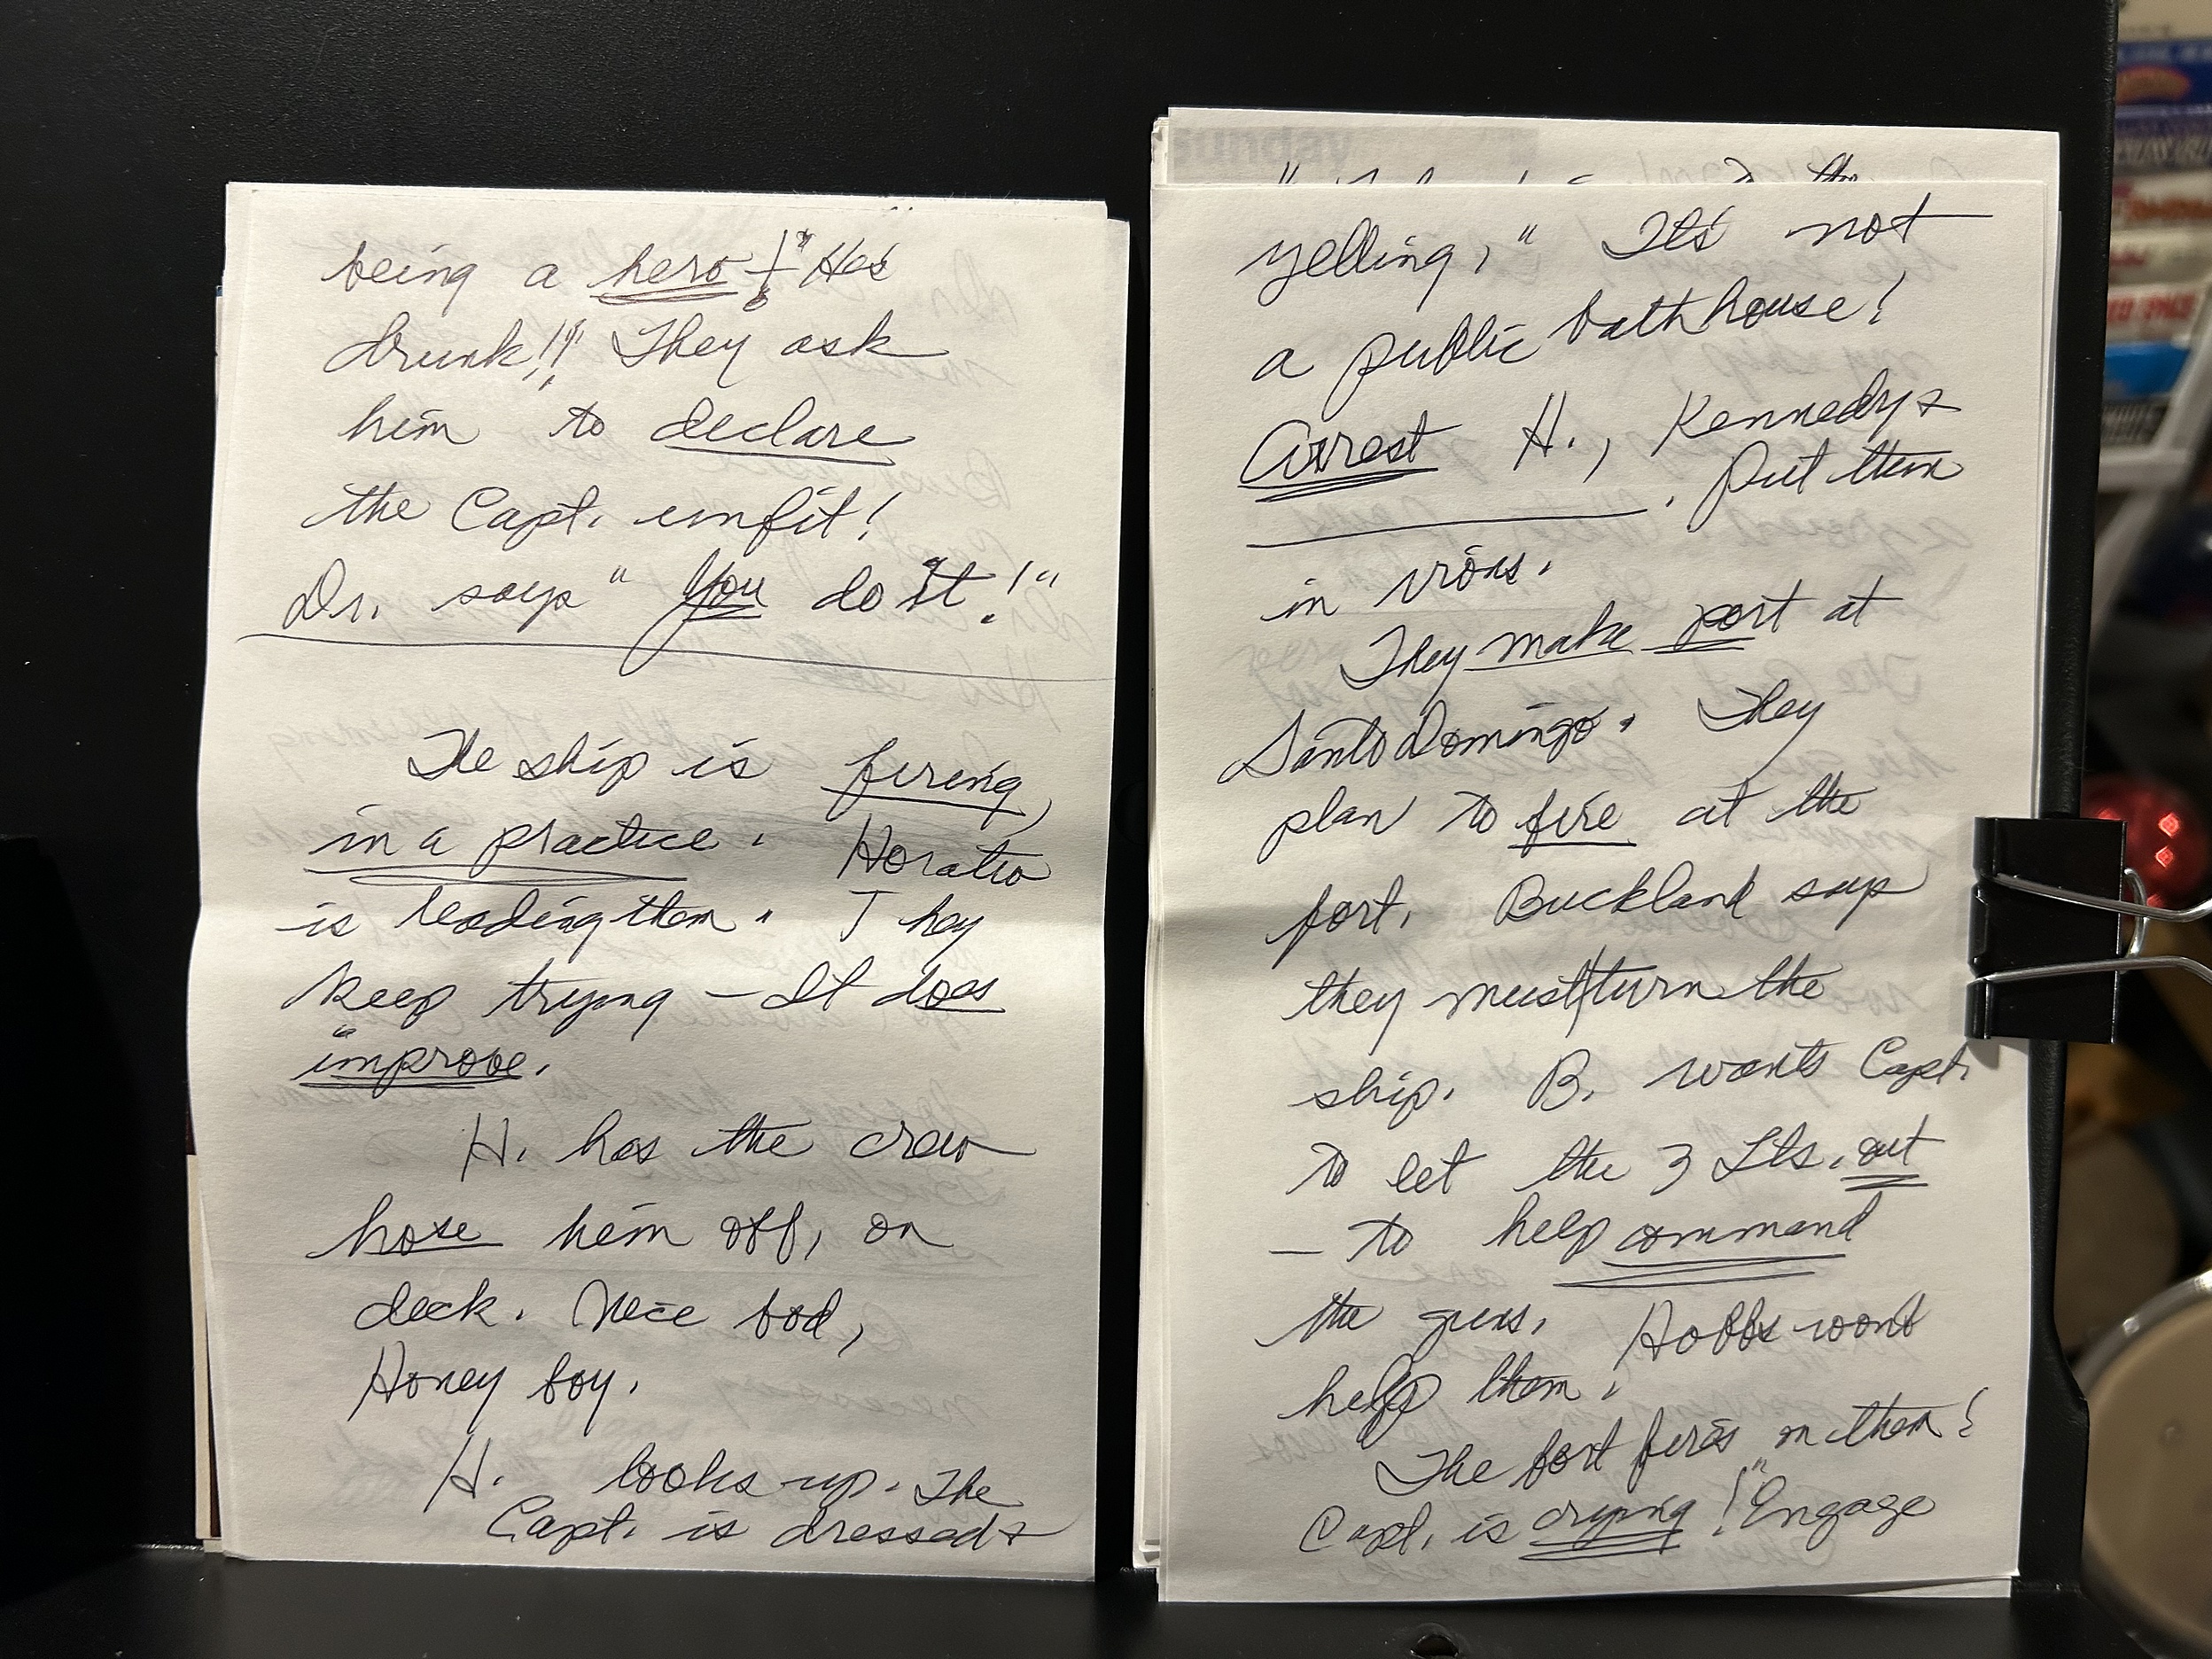 being a hero!" He's
drunk!!! They ask
him to declare
the Capt. unfit!
Dr. says "You do it!"
The ship is firing,
in a practice. Horatio
is leading them. They
keep trying – It does
improve.
H. has the crew
hose him off, on
deck. Nice bod,
Honey boy.
H. looks up. The
Capt. is dressed &
sunday
yelling, "It's not
a public bathhouse!
Arrest H., Kennedy &
. Put them
in irons.
They make port at
Santo Domingo. They
plan to fire at the
fort. Buckland says
they must turn the
ship. B. wants Capt.
to let the 3 Lts. out
– to help command
the guns. Hobbs wont
help them.
The fort fires on them!
Capt. is crying! "Engage